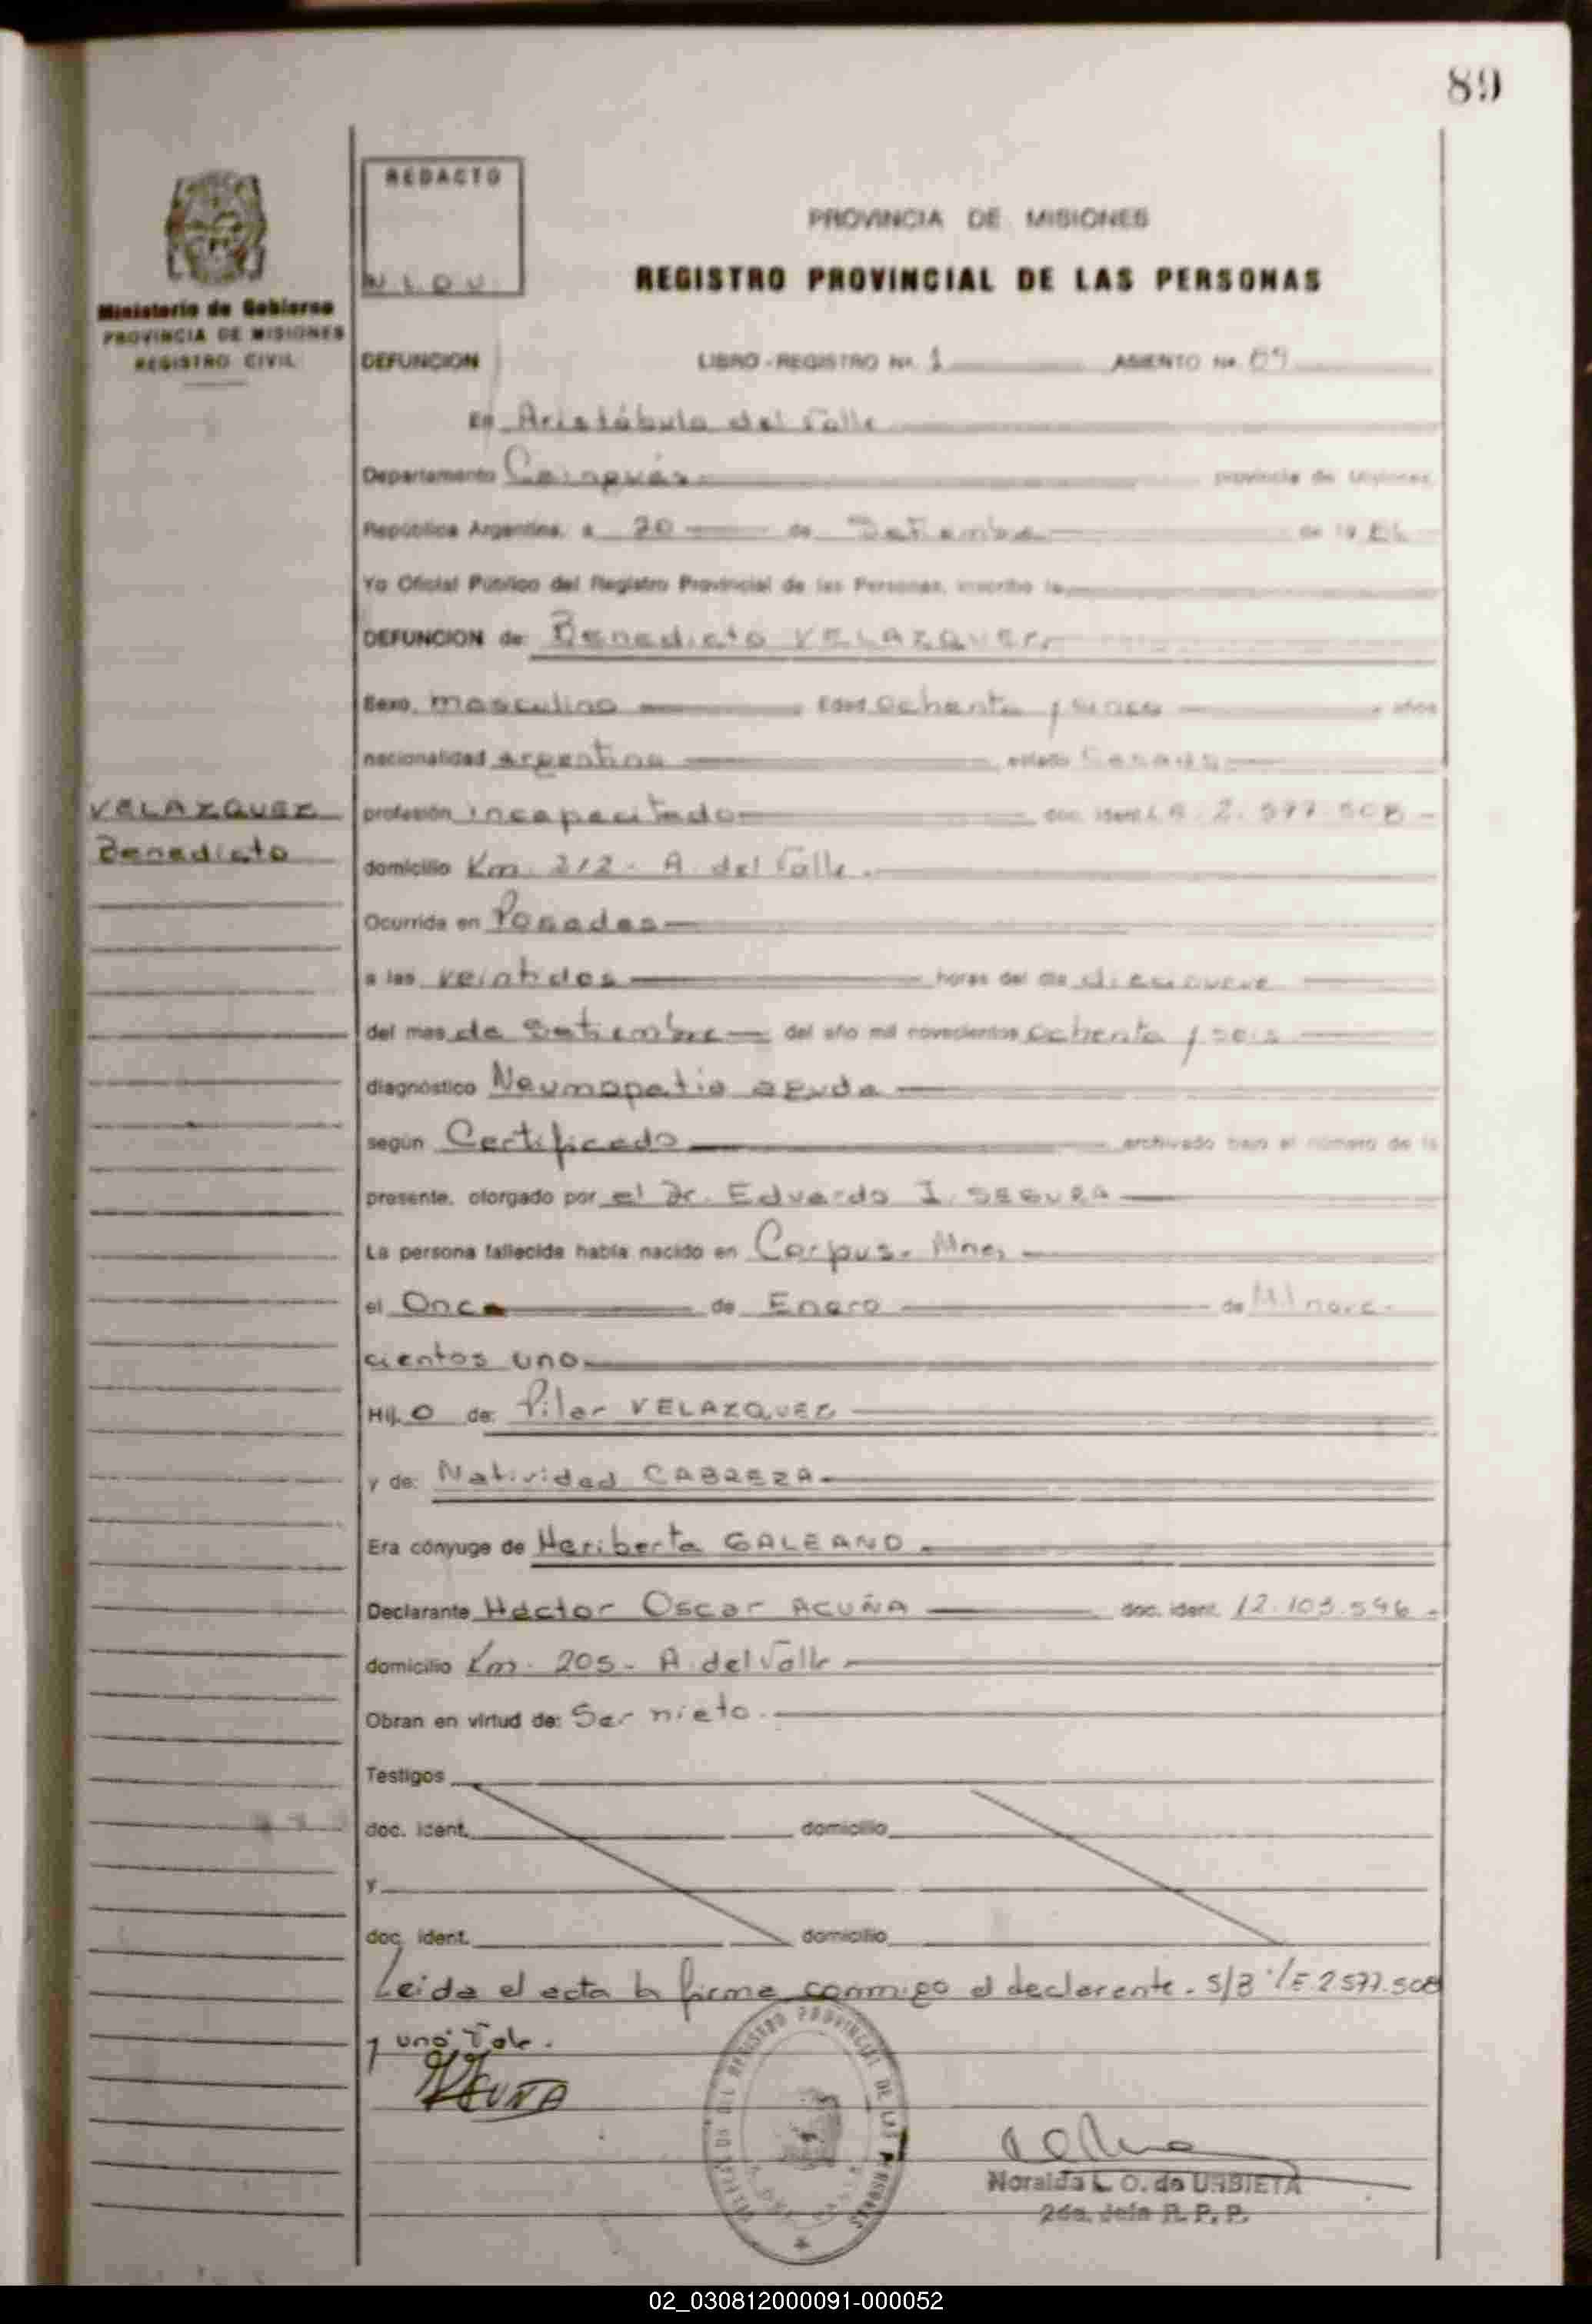 89
REDACTO
N. L. O. U.
PROVINCIA DE MISIONES
REGISTRO PROVINCIAL DE LAS PERSONAS
Ministerio de Gobierno
PROVINCIA DE MISIONES
REGISTRO CIVIL
DEFUNCION LIBRO - REGISTRO No. 1 ASIENTO No. 89
En Aristóbulo del Valle
Departamento Cainguás provincia de Misiones,
República Argentina, a 20 de Setiembre de 19 86
Yo Oficial Público del Registro Provincial de las Personas, inscribo la
DEFUNCION de: Benedicto VELAZQUEZ
Sexo, masculino Edad Ochenta y cinco años
nacionalidad argentina estado Casado
VELAZQUEZ
Benedicto
profesión incapacitado doc. ident. 2.577.508 -
domicilio Km. 212 - A. del Valle.
Ocurrida en Posadas
a las veintidos horas del dia diecinueve
del mes de Setiembre del año mil novecientos ochenta y seis
diagnóstico Neumopatia aguda
según Certificado archivado bajo el número de la
presente, otorgado por el Dr. Eduardo I. SEGURA
La persona fallecida había nacido en Corpus. Mnes
el Once de Enero de Mil nove-
cientos uno
Hij. o de: Pilar VELAZQUEZ
y de: Natividad CABRERA
Era cónyuge de Heriberta GALEANO.
Declarante Héctor Oscar ACUÑA doc. ident. 12.103.546 -
domicilio Km. 205 - A. del Valle
Obran en virtud de: Ser nieto.
Testigos
doc. ident. domicilio
y
doc. ident. domicilio
Leida el acta la firma conmigo el declarante. S/B 2.577.508
y uno Vale.
ACUÑA
REGISTRO PROVINCIAL DE LAS PERSONAS
Noralda L. O. de URBIETA
2da. Jefa R. P. P.
02_030812000091-000052